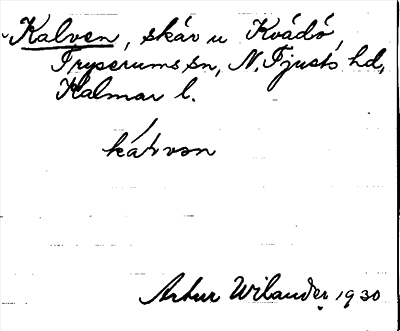 Kalven, skär u Kvädö,
Tryserums sn, N. Tjusts hd,
Kalmar l.
Artur Wilander 1930